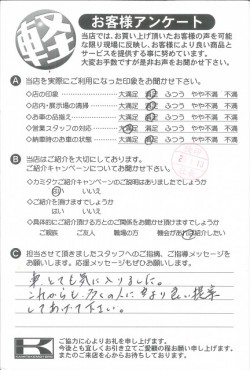 軽
お客様アンケート
当店では、お買い上げ頂いたお客様の声を可能
な限り現場に反映し、お客様により良い商品と
サービスを提供する事に努めています。
大変お手数ですが是非お声をお聞かせ下さい。
A 当店を実際にご利用になった印象をお聞かせ下さい。
◇店の印象 大満足 満足 ふつう やや不満 不満
◇店内・展示場の清掃 大満足 満足 ふつう やや不満 不満
◇お車の品揃え 大満足 満足 ふつう やや不満 不満
◇営業スタッフの対応 大満足 満足 ふつう やや不満 不満
◇納車時のお車の状態 大満足 満足 ふつう やや不満 不満
B 当店はご紹介を大切にしております。
ご紹介キャンペーンについてお聞かせ下さい。
◇カミタケご紹介キャンペーンのご説明はありましたでしょうか
はい いいえ
◇ご紹介を頂けますでしょうか
はい いいえ
◇具体的にご紹介頂ける方とのご関係をお聞かせ頂けますでしょうか
ご親族 ご友人 職場の方 機会があれば紹介したい
C 担当させて頂きましたスタッフへのご指摘、ご指導メッセージを
お願いします。応援メッセージもぜひお願いします。
車、とても気に入りました。
これからも、多くの人に、より良い提案
してあげて下さい。
K
ご協力に心よりお礼を申し上げます。
今後とも宜しくお引き立てご愛顧の程お願い申し上げます。
またのご来店を心からお待ちしております。